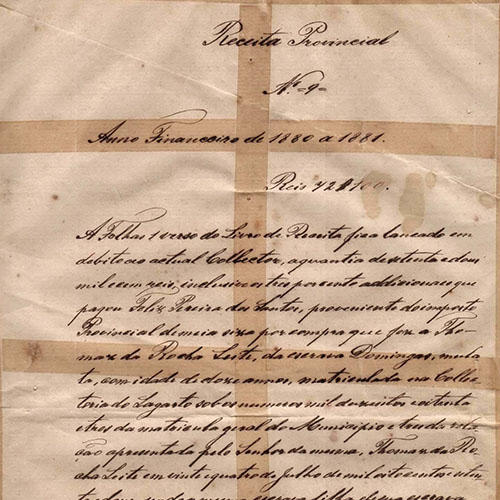 Receita Provincial
Nº =9=
Anno Financeiro de 1880 a 1881.
Reis 72$100.
A Folhas 1 verso do Livro de Receita fica lançado em
debito ao actual Collector, a quantia de setenta e dous
mil cem reis, inclusive os tres por cento addicionaes que
pagou Felix Pereira dos Santos, proveniente do imposto
Provincial de meia siza por compra que fez a Tho-
maz da Rocha Leite, da escrava Domingas, mula
ta, com idade de doze annos, matriculada na Collec
toria do Lagarto sob os numeros mil duzentos e oitenta
e tres da matricula geral do Municipio e tres da rela
ção apresentada pelo Senhor da mesma, Thomaz da Ro
cha Leite em vinte e quatro de Julho de mil oito centos e seten
ta e dous